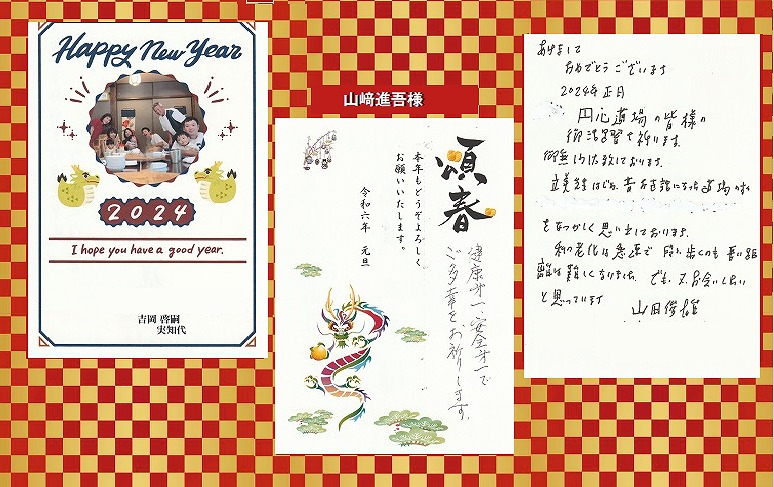 Happy New Year
2024
I hope you have a good year.
吉岡 啓嗣
実知代
山﨑進吾様
頌春
本年もどうぞよろしく
お願いいたします。
令和六年 元旦
健康第一、安全第一で
ご多幸をお祈りします。
あけまして
おめでとうございます
2024年 正月
円心道場の皆様の
御活躍を祈ります。
御無沙汰しております。
をなつかしく思い出しております。
私の老化は急速で
離は難しくなりました。でも、又お会いしたい
と思っています